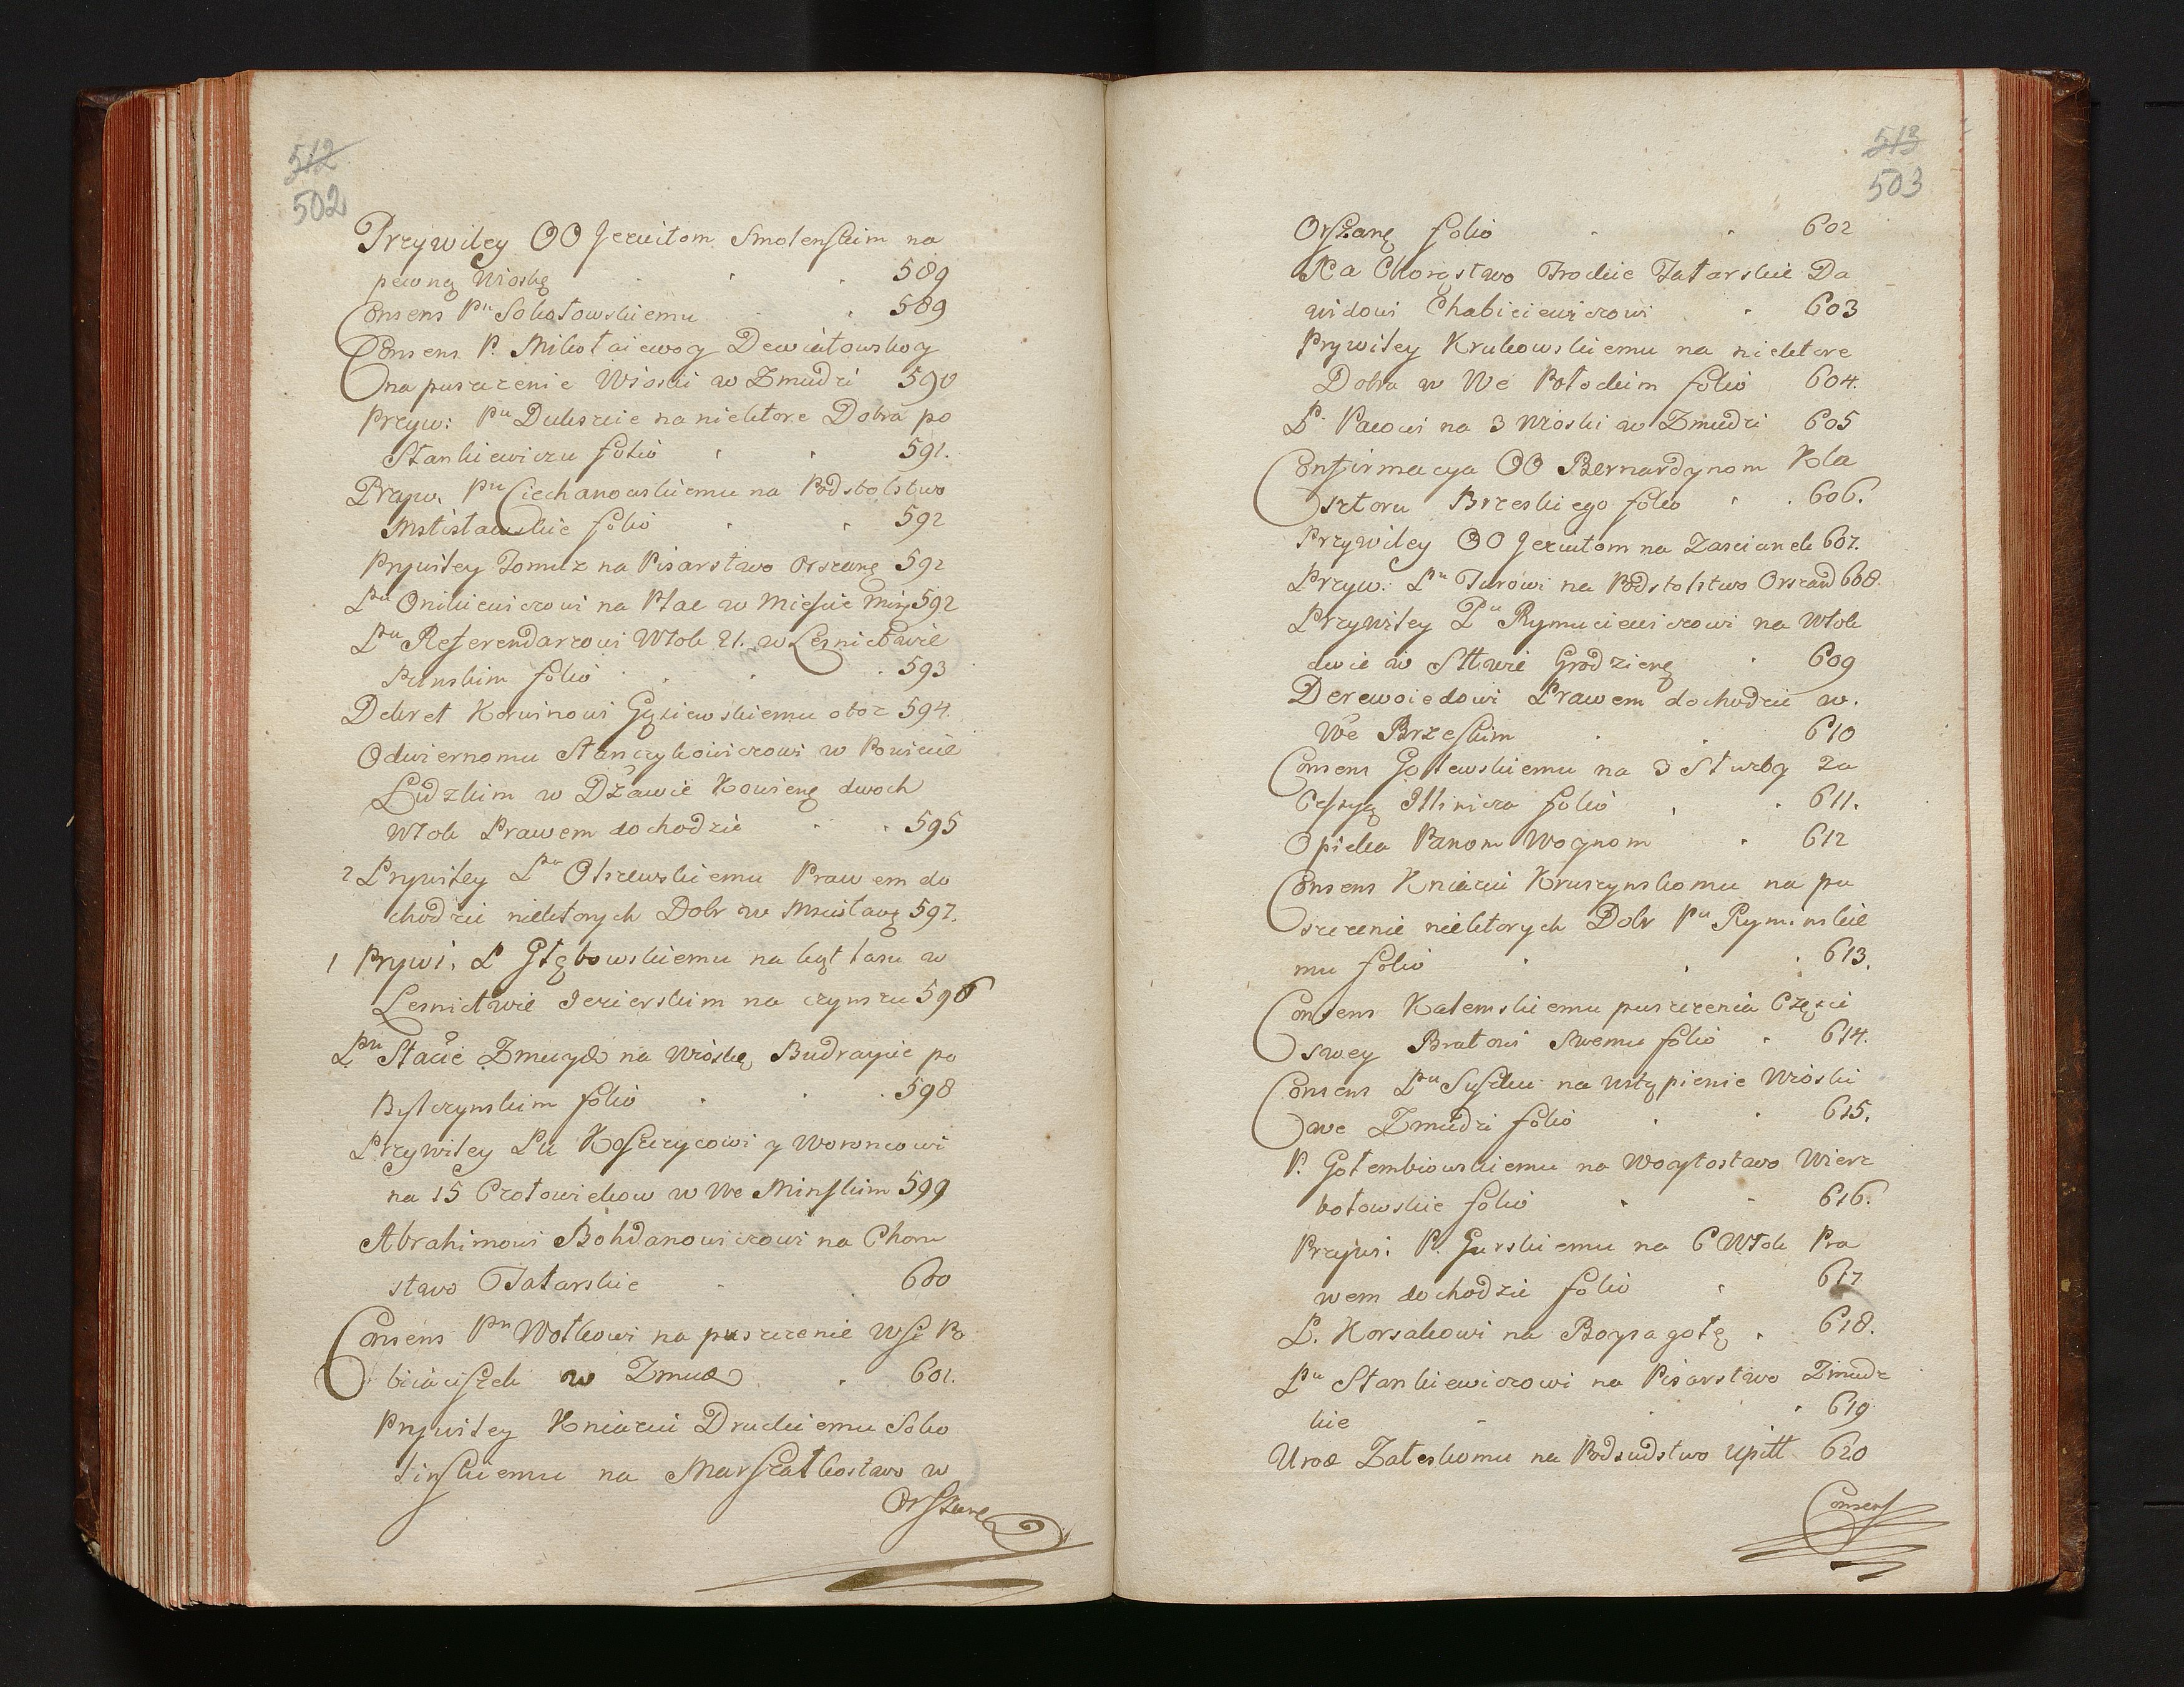 512
502
Przywiley OO Jezuitom Smolenskim na
pewną Wioskę 589
Consens Pu Sokołowskiemu 589
Consens P. Mikołaiewoy Dewiałowskoy
na puszczenie Wioski w Zmudzi 590
Przyw: Pu Dukszcie na niektore Dobra po
Stankiewiczu folio 591.
Przyw. Pu Ciechanowskiemu na Podstolstwo
Mstisławskie folio 592
Prywiley Tomuz na Pisarstwo Orszanę 592
Pu Onikiewiczowi na Plac w Mieście Miń 592
Pu Referendarzowi Włok 21. w Lesnictwie
Punskim folio 593
Dekret Korwinowi Gąsiewskiemu oto z 594.
Odwiernomu Stanczykowiczowi w Powiecie
Lidzkim w Dzawie Kowienę dwoch
Włok Prawem dochodzic 595
2 Prywiley Pu Olszewskiemu Prawem do
chodzic niektorych Dobr we Mscisławę 597.
1 Prywi. P Głębowskiemu na kąt lasu w
Lesnictwie Jezierskim na czynszu 596
Pu Stacie Zmuyd na Wioskę Budraycie po
Bystrzynskim folio 598
Przywiley Pu Koszczycowi y Woroncowi
na 15 Człowiekow w We Minskim 599
Abrahimowi Bohdanowiczowi na Choru
stwo Tatarskie 600
Consens Pu Wołkowi na puszczenie Wsi Po
biaciszek w Zmud 601.
Prywiley Kniaziu Druckiemu Soko
linskiemu na Marszałkostwo w
Orszanę
513
503
Orszanę folio 602
Na Chorąstwo Trockie Tatarskie Da
widowi Chabiciewiczowi 603
Prywiley Krukowskiemu na niektore
Dobra w We Połockim folio 604.
P. Pacowi na 3 Wioski w Zmudzi 605
Confirmacya OO Bernardynom Kla
sztoru Brzeskiego folio 606.
Przywiley OO Jezuitom na Zascianek 607.
Przyw: Pu Turowi na Podstolstwo Orszan 608.
Przywiley Pu Rymuciewiczowi na Włok
dwie w Sttwie Grodzienę 609
Derewoiedowi Prawem dochodzic w.
We Brzeskim 610
Consens Gostewskiemu na 3 Służby za
Cessyą Illinicza folio 611.
Opieka Panom Woynom 612
Consens Kniaziu Kruszynskomu na pu
szczenie niektorych Dobr Pu Ryminskie
mu folio 613.
Consens Kalemskiemu puszczenia Części
swey Bratowi Swemu folio 614.
Consens Pu Syszku na ustąpienie Wioski
we Zmudzi folio 615.
P. Gołembiowskiemu na Woytostwo Wierz
bołowskie folio 616.
Przywi: P. Gurskiemu na 6 Włok Pra
wem dochodzic folio 617
P. Korsakowi na Boysagołę 618.
Pu Stankiewiczowi na Pisarstwo Zmudz
kie 619
Urod Zaleskomu na Podsudstwo Upitt 620
Consens